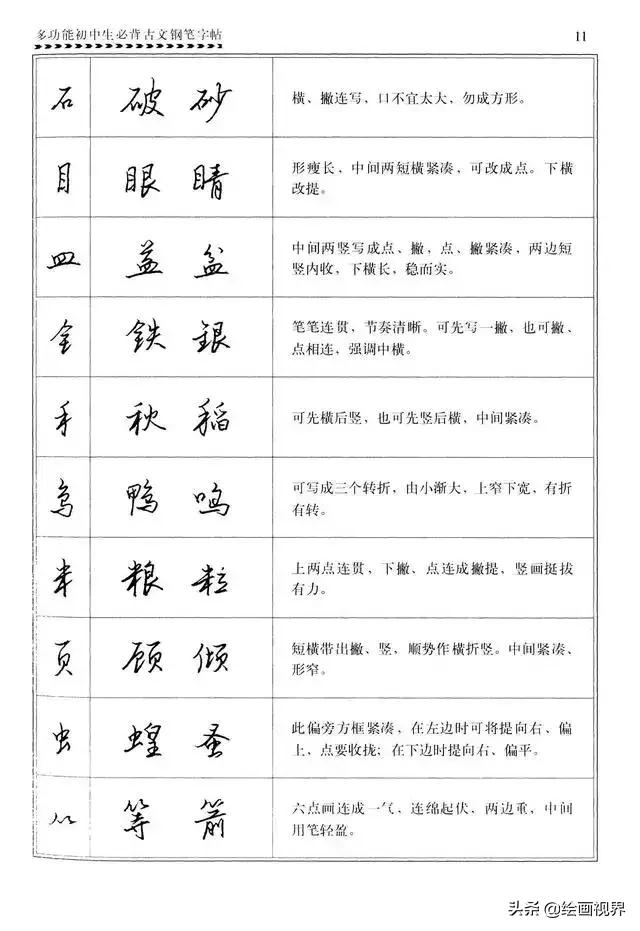 多功能初中生必背古文钢笔字帖
11
石 破 砂 横、撇连写，口不宜太大，勿成方形。
目 眼 睛 形瘦长，中间两短横紧凑，可改成点。下横
改提。
皿 益 盆 中间两竖写成点、撇，点、撇紧凑，两边短
竖内收，下横长，稳而实。
钅 铁 银 笔笔连贯，节奏清晰。可先写一撇，也可撇、
点相连，强调中横。
禾 秋 稻 可先横后竖，也可先竖后横，中间紧凑。
鸟 鸭 鸣 可写成三个转折，由小渐大，上窄下宽，有折
有转。
米 粮 粒 上两点连贯，下撇、点连成撇提，竖画挺拔
有力。
页 顾 倾 短横带出撇、竖，顺势作横折竖。中间紧凑、
形窄。
虫 蝗 蚤 此偏旁方框紧凑，在左边时可将提向右、偏
上，点要收拢；在下边时提向右、偏平。
⺮ 等 箭 六点画连成一气，连绵起伏，两边重，中间
用笔轻盈。
头条 @绘画视界